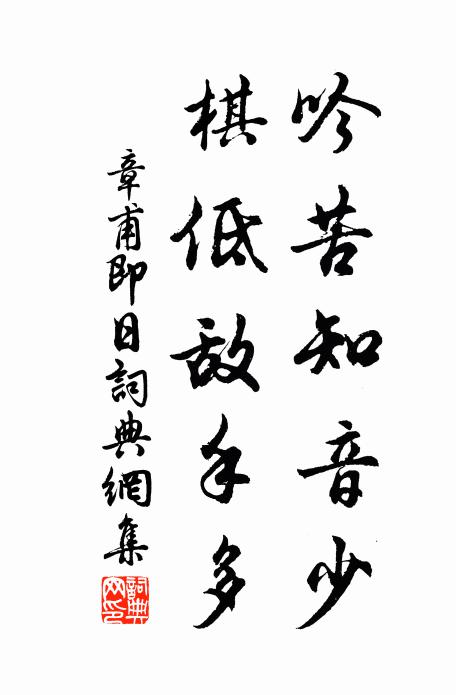 吟苦知音少
棋低敌手多
章甫即日詞典網集
詞典网印